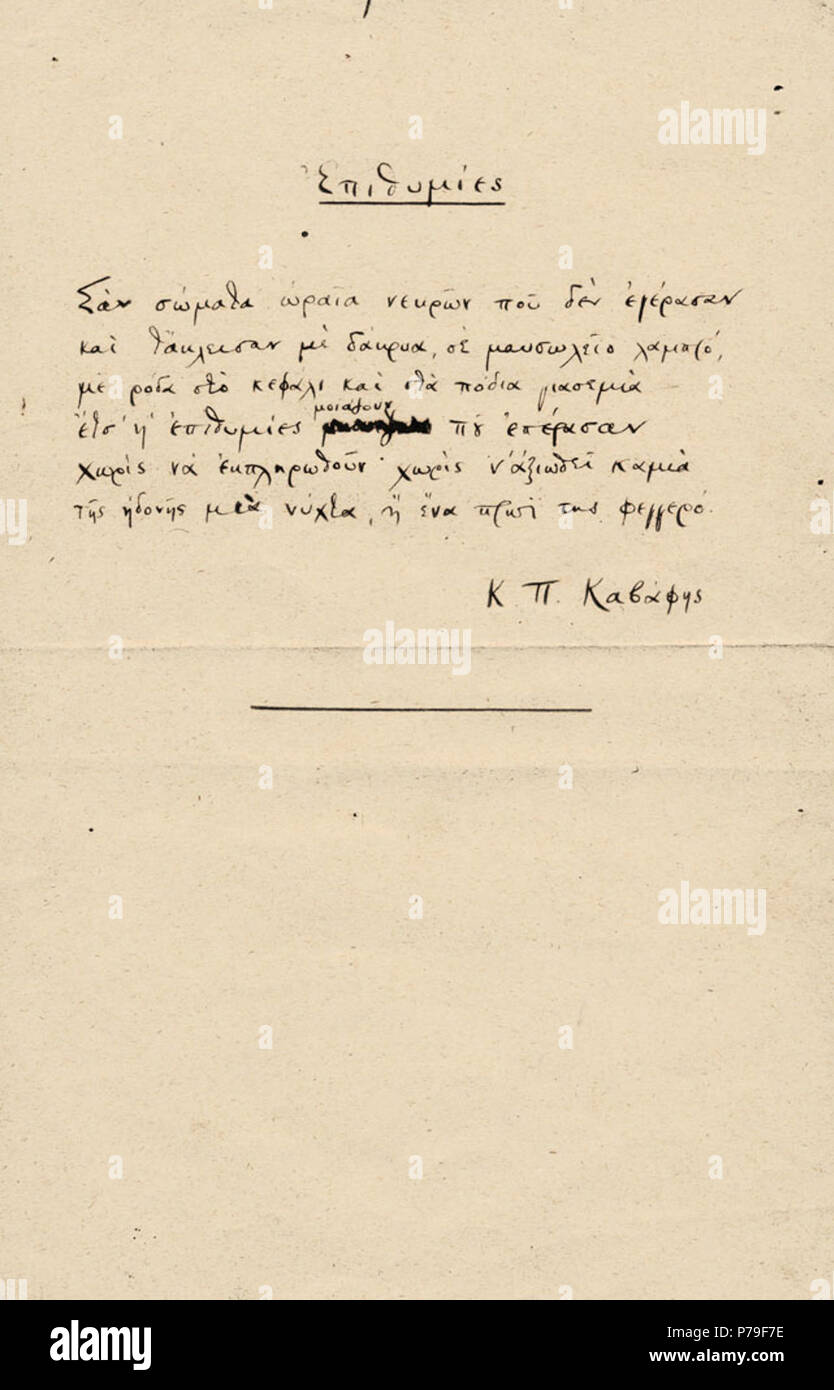 Ἐπιθυμίες
Σὰν σώματα ὡραῖα νεκρῶν ποῦ δὲν ἐγέρασαν
καὶ τἄκλεισαν μὲ δάκρυα, σὲ μαυσωλεῖο λαμπρό,
μὲ ρόδα στὸ κεφάλι καὶ στὰ πόδια γιασεμιὰ
μοιάζουν
ἔτσ' ἡ ἐπιθυμίες ποὺ ἐπέρασαν
χωρὶς νὰ ἐκπληρωθοῦν· χωρὶς ν' ἀξιωθεῖ καμιὰ
τῆς ἡδονῆς μιὰ νύχτα, ἢ ἕνα πρωῒ της φεγγερό.
Κ. Π. Καβάφης
alamy
alamy
Image ID: P79F7E
www.alamy.com